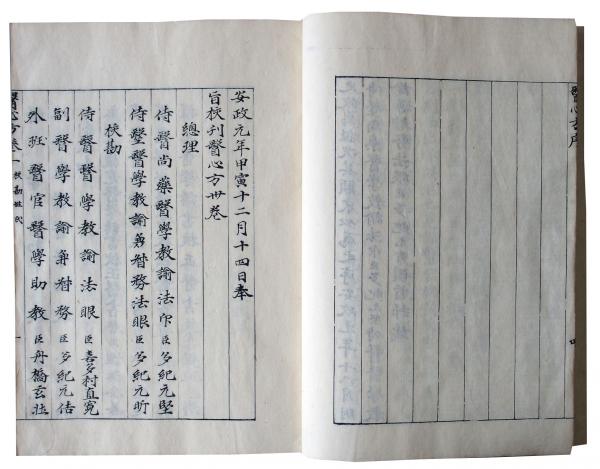 醫心方序
四
安政元年甲寅十二月十四日奉
旨校刊醫心方卅卷
總理
侍醫尚藥醫學教諭法印 臣 多紀元堅
侍醫醫學教諭兼督務法眼 臣 多紀元昕
校勘
侍醫醫學教諭法眼 臣 喜多村直寬
副醫學教諭兼督務 臣 多紀元佶
外班醫官醫學助教 臣 丹橋玄壯
醫心方卷一 校勘姓氏
一